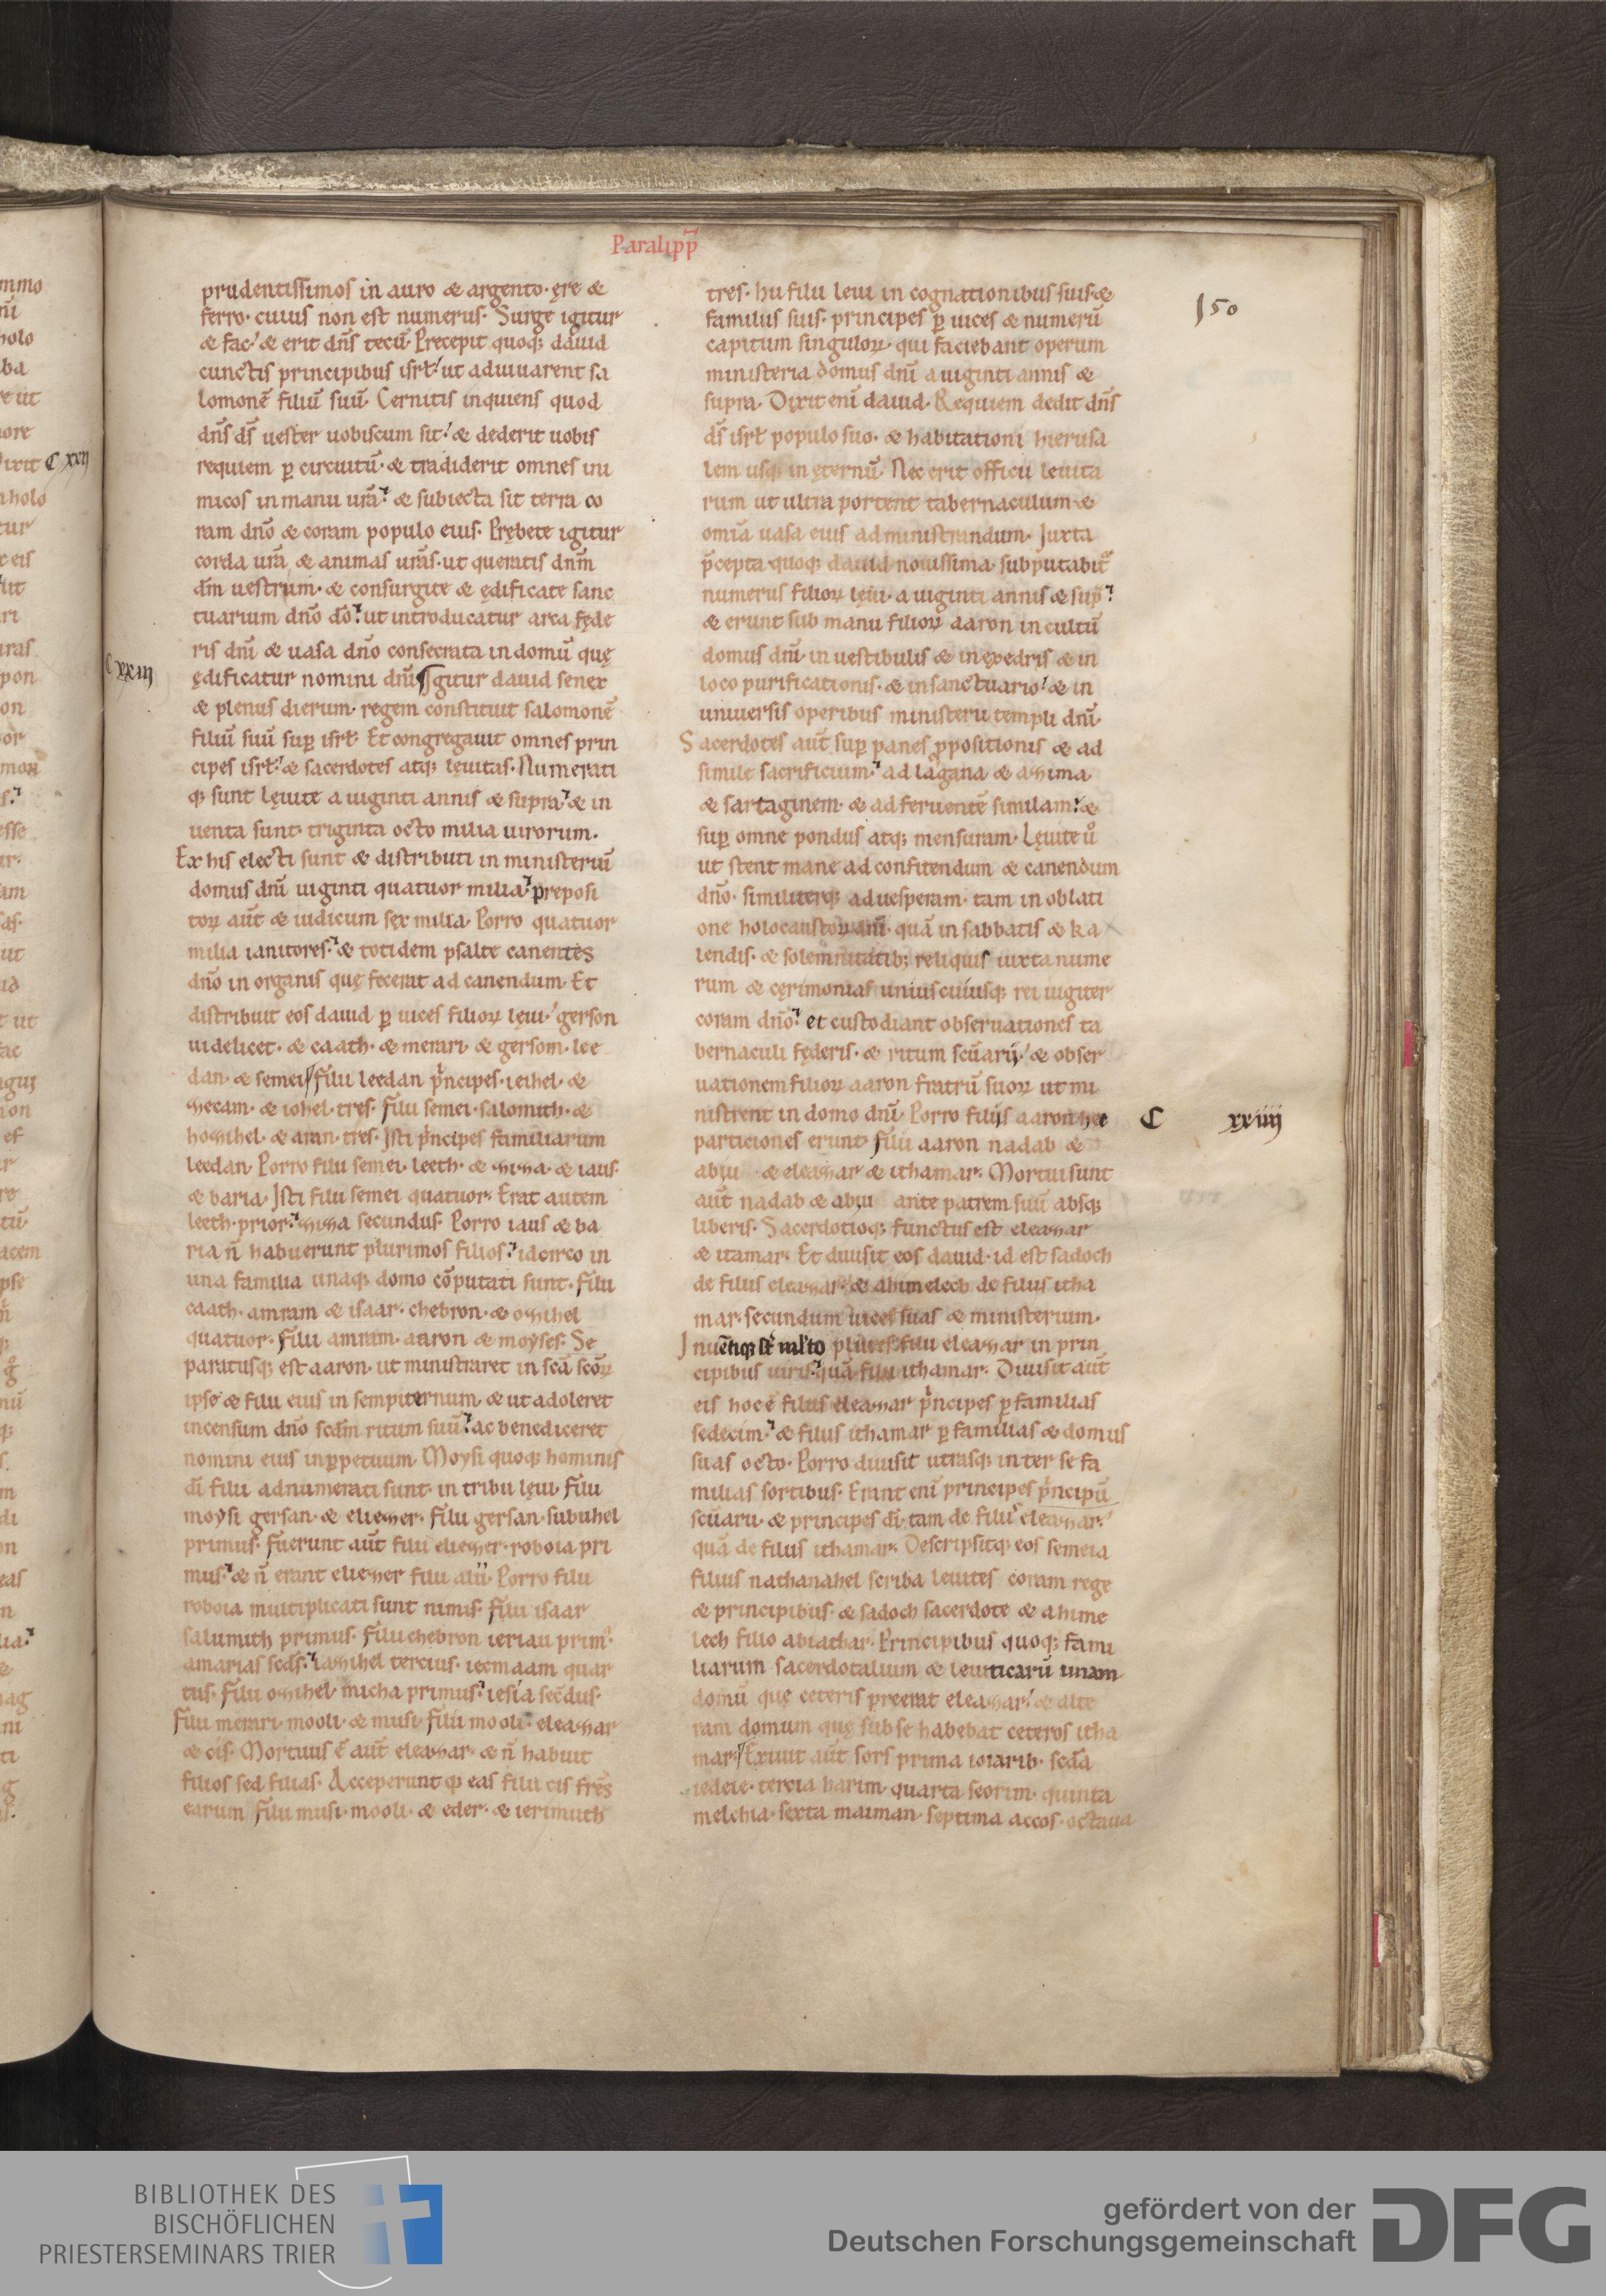 Paralipp̄
150
prudentissimos in auro & argento· ęre &
ferro· cuius non est numerus· Surge igitur
& fac· & erit dn̄s tecū· Precepit quoq; dauid
cunctis principibus isrł· ut adiuuarent sa
lomonē filiū suū· Cernitis inquiens quod
dn̄s ds̄ uester uobiscum sit· & dederit uobis
requiem p̱ circuitū· & tradiderit omnes ini
micos in manu urā· & subiecta sit terra co
ram dnō & coram populo eius· Prębete igitur
corda urā & animas urās· ut queratis dnm̄
dm̄ uestrum· & consurgite & ędificate sanc
tuarium dnō dō· ut introducatur arca fęde
ris dnī & uasa dnō consecrata in domū quę
C xxiii
ędificatur nomini dnī Igitur dauid senex
& plenus dierum· regem constituit salomonē
filiū suū sup̱ isrł· Et congregauit omnes prin
cipes isrł· & sacerdotes atq; lęuitas· Numerati
q; sunt lęuite a uiginti annis & supra· & in
uenta sunt· triginta octo milia uirorum·
Ex his electi sunt & distributi in ministeriū
domus dnī uiginti quatuor milia· preposi
toꝝ aūt & iudicum sex milia· Porro quatuor
milia ianitores· & totidem psalte canentes
dnō in organis quę fecerat ad canendum· Et
distribuit eos dauid p̱ uices filioꝝ lęui· gerson
uidelicet· & caath· & merari· & gersom· lee
dan· & semei· filii leedan princıpes· ieihel· &
zecam· & iohel· tres· filii semei· salomith· &
hozihel· & aran· tres· Isti princıpes familiarum
leedan· Porro filii semei· leeth· & ziza· & iaus·
& baria· Isti filii semei quatuor· Erat autem
leeth· prior· ziza secundus· Porro iaus & ba
ria n̄ habuerunt plurimos filios· idcirco in
una familia unaq; domo cōputati sunt· filii
caath· amram & isaar· chebron· & ozihel
quatuor· filii amram· aaron & moyses· Se
paratusq; est aaron· ut ministraret in scā scōꝝ
ipse & filii eius in sempiternum· & ut adoleret
incensum dnō scdm̄ ritum suū· ac benediceret
nomini eius inp̱petuum· Moysi quoq; hominis
dī filii adnumerati sunt· in tribu lęui· filii
moysi gersan· & eliezer· filii gersan· subuhel
primus· Fuerunt aūt filii eliezer· roboia pri
mus· & n̄ erant eliezer filii alii· Porro filii
roboia multiplicati sunt nimis· filii isaar
salumith primus· filii chebron ieriau prim᷒·
amarias scds̄· iazihel tercius· iecmaam quar
tus· filii ozihel· micha primus· iesia secdus·
filii merari· mooli· & musi· filii mooli· eleazar
& cis· Mortuus ē aūt eleazar· & n̄ habuit
filios sed filias· Acceperunt q; eas filii cis frēs
earum filii musi· mooli· & eder· & ierimuth
tres· hii filii leui in cognationibus suis· &
familiis suis· principes p̱ uices & numerū
capitum singuloꝝ· qui faciebant operum
ministeria domus dnī a uiginti annis &
supra· Dixit enī dauid· Requiem dedit dn̄s
ds̄ isrł populo suo· & habitationi hierusa
lem usq; in ęternū· Nec erit officii leuita
rum ut ultra portent tabernaculum· &
omīa uasa eius ad ministrandum· Iuxta
p̄cepta quoq; dauid nouissima· subputabit᷑
numerus filioꝝ lęui· a uiginti annis & sup̄·
& erunt sub manu filioꝝ aaron in cultū
domus dnī· in uestibulis & in exedris & in
loco purificationis· & in sanctuario· & in
uniuersis operibus ministerii templi dnī·
Sacerdotes aūt sup̱ panes ꝓpositionis & ad
simile sacrificium· ad lagana & azima
& sartaginem· & ad feruentē similam· &
sup̱ omne pondus atq; mensuram· Lęuite uͦ
ut stent mane ad confitendum & canendum
dnō· similiterq; ad uesperam· tam in oblati
one holocaustoꝝ dnī· quā in sabbatis & ka
lendis· & solemnitatib; reliquis iuxta nume
rum & cęrimonias uniuscuiusq; rei iugiter
coram dnō· et custodiant obseruationes ta
bernaculi fęderis· & ritum scūarij· & obser
uationem filioꝝ aaron fratrū suoꝝ ut mi
nistrent in domo dnī· Porro filijs aaron hee
C xxiiii
particiones erunt· filii aaron nadab &
abiu & eleazar & ithamar· Mortui sunt
aūt nadab & abiu ante patrem suū absq;
liberis· Sacerdotioq; functus est eleazar
& itamar· Et diuisit eos dauid· id est sadoch
de filiis eleazar· & ahimelech de filiis itha
mar· secundum uices suas & ministerium·
Inuētiq; st̄ ml̄to plures filii eleazar in prin
cipibus uiris· quā filii ithamar· Diuisit aūt
eis hoc ē filiis eleazar princıpes p̱ familias
sedecim· & filiis ithamar p̱ familias & domus
suas octo· Porro diuisit utrasq; inter se fa
milias sortibus· Erant enī principes princıpū
scūarii· & principes dī· tam de filiis eleazar·
quā de filiis ithamar· Descripsitq; eos semeia
filius nathanahel scriba leuites coram rege
& principibus· & sadoch sacerdote & ahime
lech filio abiathar· Principibus quoq; fami
liarum sacerdotalium & leuiticarū unam
domū quę ceteris preerat eleazar· & alte
ram domum quę sub se habebat ceteros itha
mar· Exiuit aūt sors prima ioiarib· scdā
iedeie· tercia harim· quarta seorim· quinta
melchia· sexta maiman· septima accos· octaua
BIBLIOTHEK DES
BISCHÖFLICHEN
PRIESTERSEMINARS TRIER
gefördert von der
Deutschen Forschungsgemeinschaft
DFG